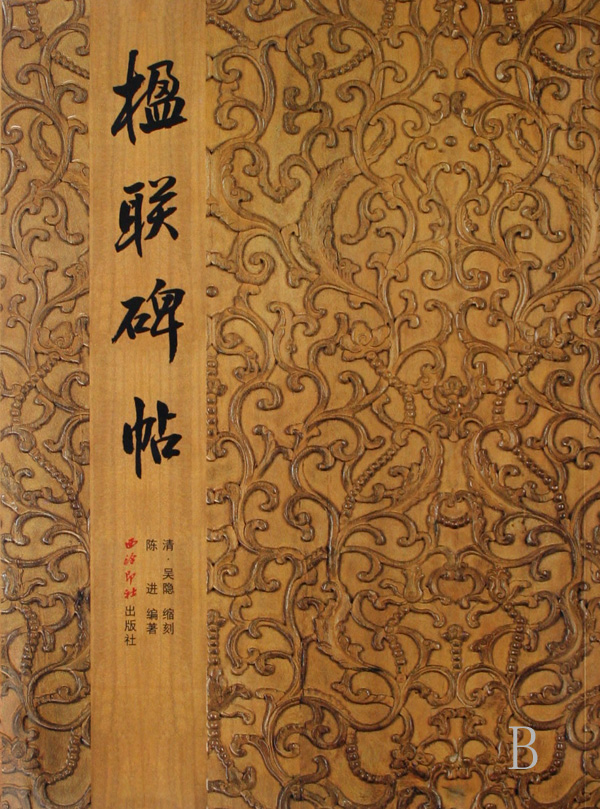 楹联碑帖
清 吴隐 缩刻
陈进 编著
西泠印社出版社
B